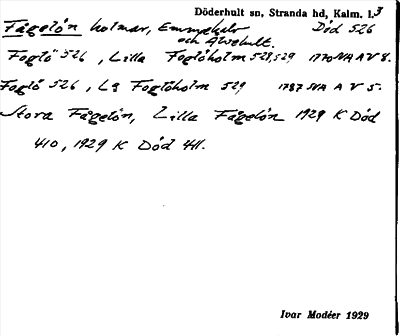 Döderhult sn, Stranda hd, Kalm. l. 3
Fågelön holmar, Emmekalv Död 526
och Alvehult.
Foglö 526, Lilla Foglöholm 528,529 1770 NA A V 8.
Foglö 526, La Foglöholm 529 1787 NA A V 5.
Stora Fågelön, Lilla Fågelön 1929 K Död
410, 1929 K Död 411.
Ivar Modéer 1929